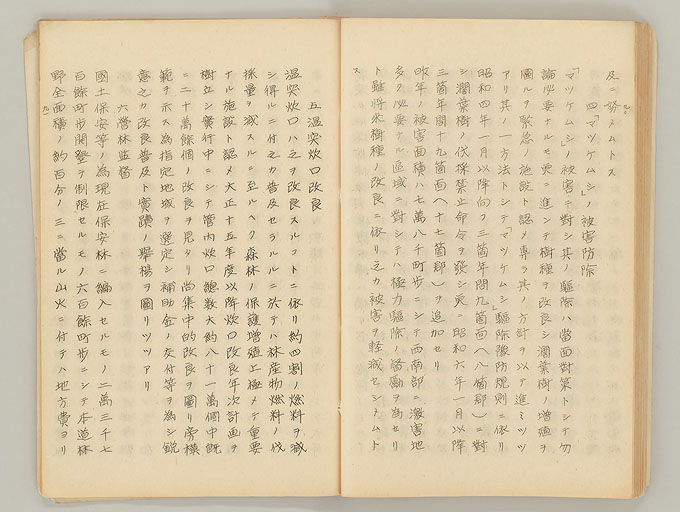 及ニ努メムトス
四「マツケムシ」ノ被害防除
「マツケムシ」ノ被害ニ對シ其ノ驅除ハ當面對策トシテ勿
論必要ナルモ更ニ進ンテ樹種ヲ改良シ濶葉樹ノ増殖ヲ
圖ルヲ緊急ノ施設ト認メ專ラ其ノ方針ヲ以テ進ミツツ
アリ其ノ一方法トシテ「マツケムシ」驅除豫防規則ニ依リ
昭和四年一月以降向フ三箇年間九箇面(八箇郡)ニ對
シ濶葉樹ノ伐採禁止命令ヲ發シ更ニ昭和六年一月以降
三箇年間十九箇面(十七箇郡)ヲ追加セリ
昨年ノ被害面積ハ七萬八千町歩ニシテ西南部ニ激害地
多ク必要ナル區域ニ對シテハ極力驅除ノ督勵ヲ為セリ
ト雖將來樹種ノ改良ニ依リ之カ被害ヲ輕減セシメムト
ス
五温突炊口改良
温突炊口ハ之ヲ改良スルコトニ依リ約四割ノ燃料ヲ減
シ得ルニ付之カ普及セラルルニ於テハ林産物燃料ノ伐
採量ヲ減スルニ至ルヘク森林ノ保護増殖上極メテ重要
ナル施設ト認メ大正十五年度以降炊口改良年次計畫ヲ
樹立シ實行中ニシテ管内炊口總數大約八十一萬個中既
ニ二十萬餘個ノ改良ヲ見タリ尚集中的改良ヲ圖リ旁模
範ヲ示ス為指定地域ヲ選定シ補助金ノ交付等ヲ為シ鋭
意之カ改良普及ト實蹟ノ擧揚ヲ圖リツツアリ
六營林監督
國土保安等ノ為現在保安林ニ編入セルモノ二萬三千七
百餘町歩開墾ヲ制限セルモノ六百餘町歩ニシテ本道林
野全面積ノ約百分ノ三ニ當ル山火ニ付テハ地方費ヨリ